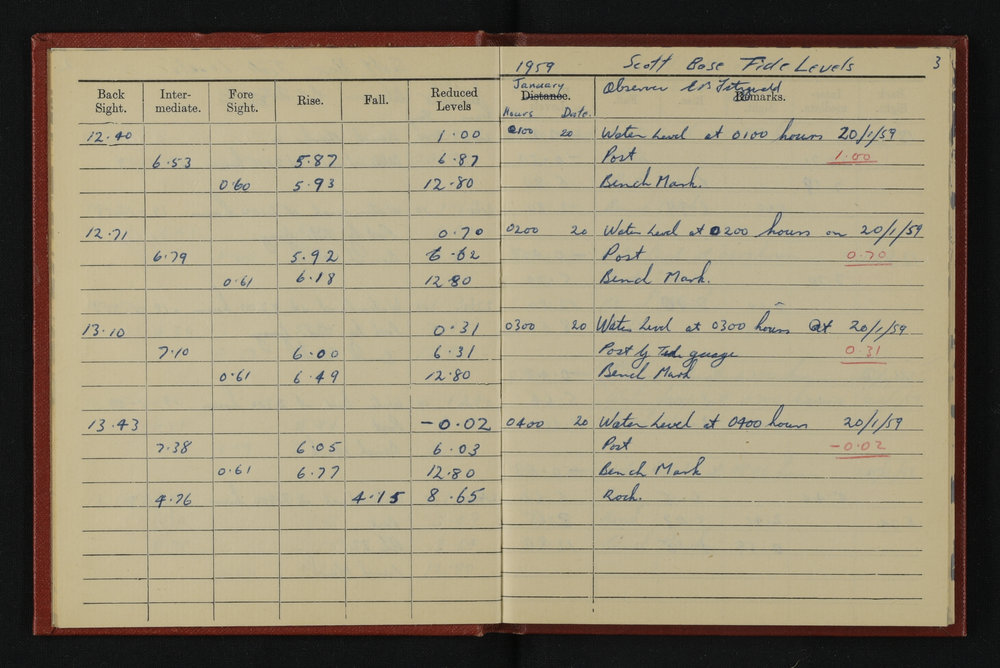 1959 Scott Base Tide Levels 3
January Observer
Back Sight. Inter-mediate. Fore Sight. Rise. Fall. Reduced Levels Distance. Remarks.
Hours Date.
12.40 1.00 0100 20 Water Level at 0100 hours 20/1/59
6.53 5.87 6.87 Post 1.00
0.60 5.93 12.80 Bench Mark.
12.71 0.70 0200 20 Water Level at 0200 hours on 20/1/59
6.79 5.92 6.62 Post 0.70
0.61 6.18 12.80 Bench Mark.
13.10 0.31 0300 20 Water Level at 0300 hours at 20/1/59
7.10 6.00 6.31 Post by Tide guage 0.31
0.61 6.49 12.80 Bench Mark
13.43 -0.02 0400 20 Water Level at 0400 hours 20/1/59
7.38 6.05 6.03 Post -0.02
0.61 6.77 12.80 Bench Mark
4.76 4.15 8.65 Rock.